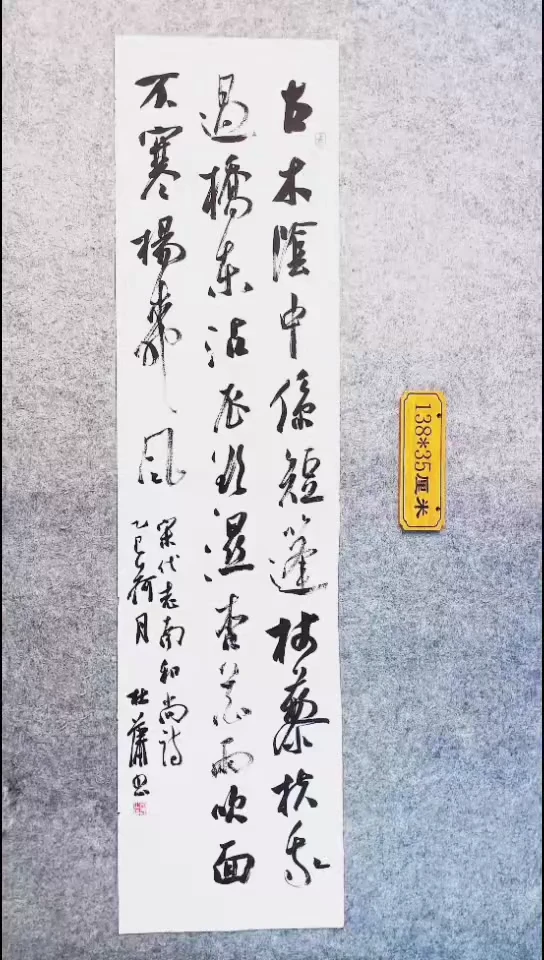 古木陰中係短篷杖藜扶我
過橋東沾衣欲濕杏花雨吹面
不寒楊柳風
宋代志南和尚詩
乙巳荷月 杜蕭书
138*35厘米